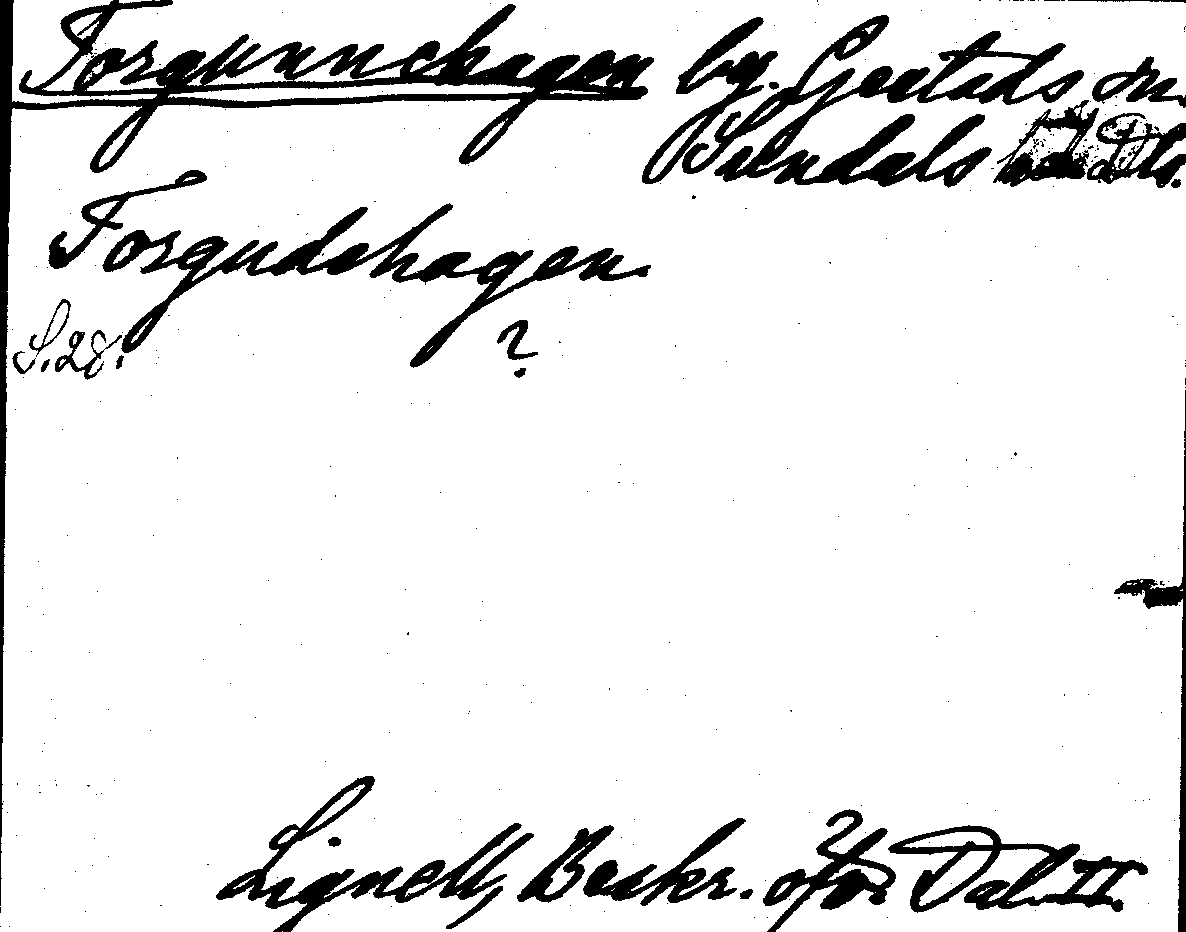 Torgunnehagen by. Gestads sn.
Sundals hd Dls.
Torgudehagen.
S. 28. ?
Lignell, Beskr. öfver Dal. II.